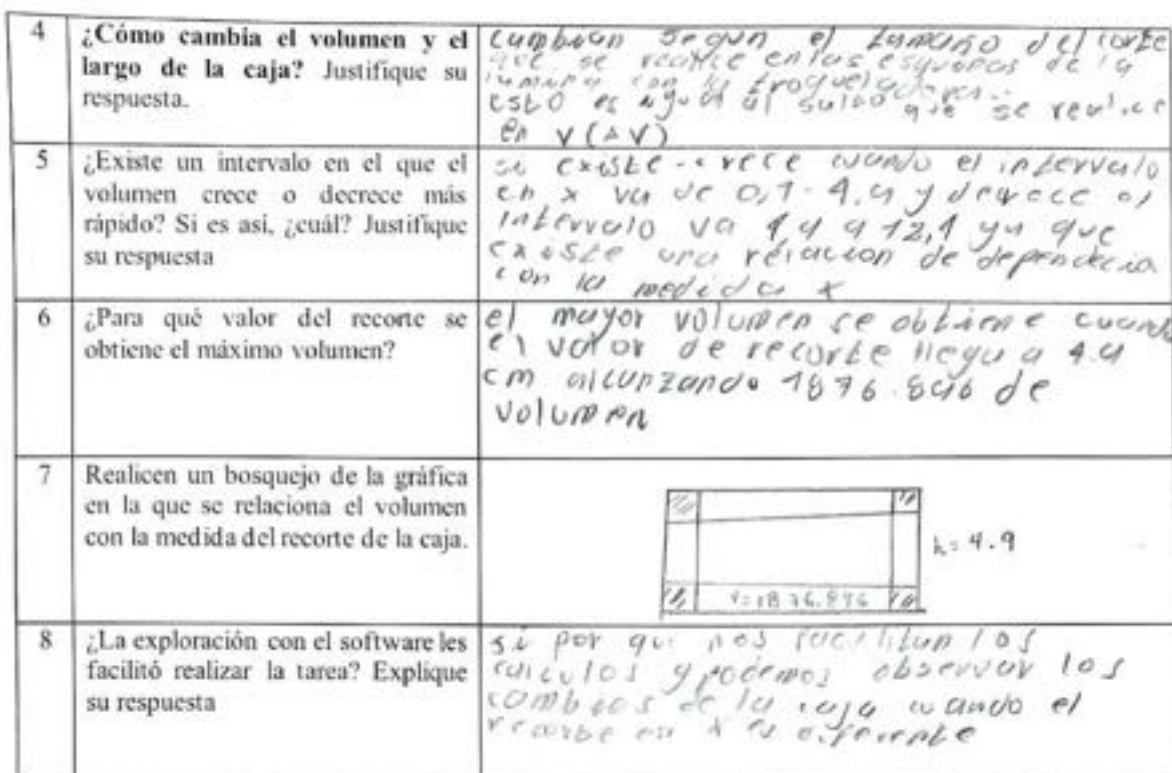 4 ¿Cómo cambia el volumen y el
largo de la caja? Justifique su
respuesta.
cambian segun el tamaño del corte
que se realice en las esquinas de la
lamina con la troqueladora..
esto es igual al que se realice
en V(ΔV)
5 ¿Existe un intervalo en el que el
volumen crece o decrece más
rápido? Si es así, ¿cuál? Justifique
su respuesta
si existe - crece cuando el intervalo
en x va de 0,1 - 4.9 y decrece
intervalo va 4.9 a 12,1 ya que
existe una relacion de dependecia
con la medida x
6 ¿Para qué valor del recorte se
obtiene el máximo volumen?
el mayor volumen se obtiene cuando
el valor de recorte llega a 4.9
cm alcanzando 1876.896 de
volumen
7 Realicen un bosquejo de la gráfica
en la que se relaciona el volumen
con la medida del recorte de la caja.
h=4.9
V=1876.896
8 ¿La exploración con el software les
facilitó realizar la tarea? Explique
su respuesta
si por que nos facilitan los
calculos y podemos observar los
cambios de la caja cuando el
recorte en x es diferente